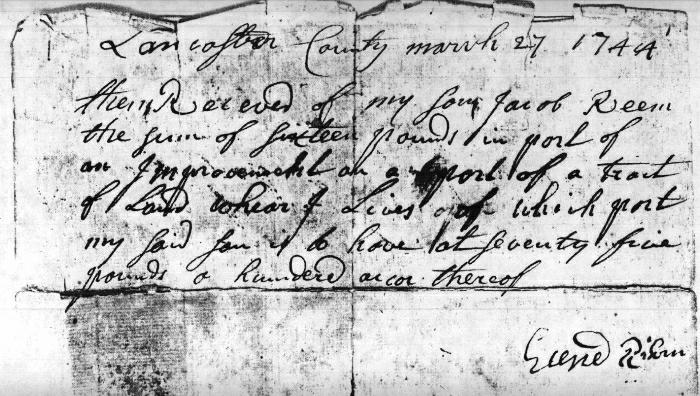 Lancaster County march 27 1744
then Receved of my son Jacob Reem
the sum of sixteen pounds in port of
an Improvement on a port of a tract
of Land whear I Lives of which port
my said son is to have at seventy five
pounds a hundered accor thereof